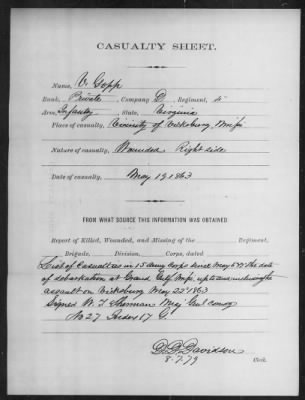 CASUALTY SHEET.
Name, V. Gopp
Rank, Private, Company D, Regiment, 4"
Arm, Infantry, State, Virginia
Place of casualty, Vicinity of Vicksburg Miss
Nature of casualty, Wounded Right side
Date of casualty, May 19 1863
FROM WHAT SOURCE THIS INFORMATION WAS OBTAINED
Report of Killed, Wounded, and Missing of the Regiment,
Brigade, Division, Corps, dated
List of Casualties in 15 Army Corps since May 5th the date
of debarkation at Grand Gulf Miss, up to and including the
assault on Vicksburg May 22d 1863
Signed W. T. Sherman Maj Genl comdg
No 27 17
Davidson
Clerk.
8.7.79